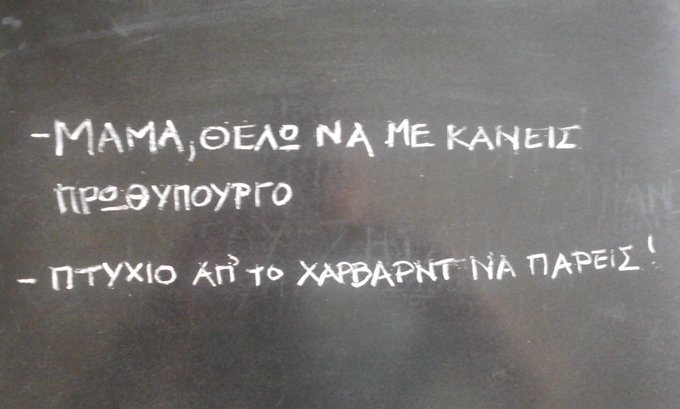 - ΜΑΜΑ, ΘΕΛΩ ΝΑ ΜΕ ΚΑΝΕΙΣ
ΠΡΩΘΥΠΟΥΡΓΟ
- ΠΤΥΧΙΟ ΑΠ' ΤΟ ΧΑΡΒΑΡΝΤ ΝΑ ΠΑΡΕΙΣ!